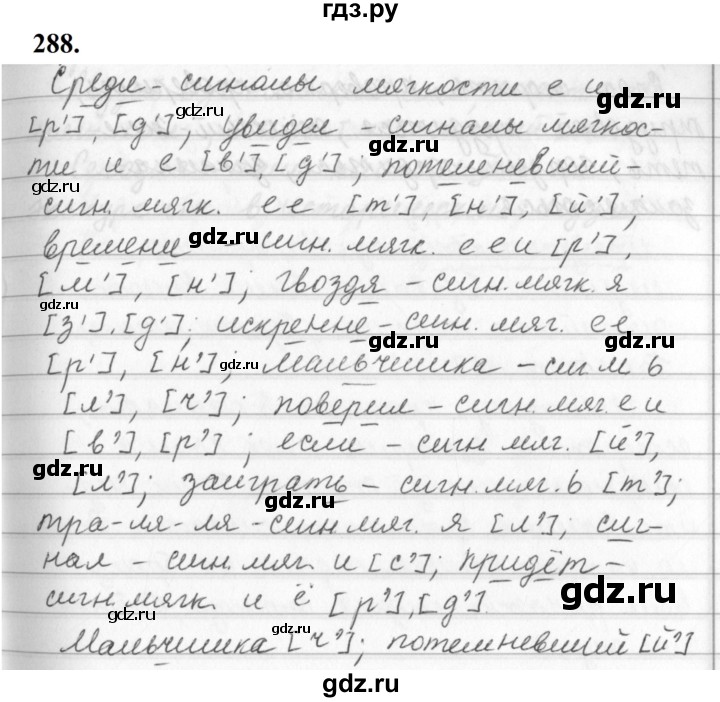 гдз.ру
288.
Среди - сигналы мягкости е и
[р'], [д'], увидел - сигналы мягкос-
ти и е [в'], [д'], потемневший -
сигн. мягк. ее [т'], [н'], [й'];
времени - сигн. мягк. е е и [р'],
[м'], [н']; гвоздя - сигн. мягк. я
[з'], [д']; искренне - сигн. мяг. ее
[р'], [н']; мальчишка - сиг м ь
[л'], [ч']; поверил - сигн. мяг. е и
[в'], [р']; если - сигн мяг. [й'],
[л']; заиграть - сигн. мяг. ь [т'];
тра-ля-ля - сигн мяг. я [л']; сиг-
нал - сигн. мяг. и [с']; придёт -
сигн. мягк. и ё [р'], [д'].
Мальчишка [ч']; потемневший [й']
gdz.ru
gdz.ru
gdz.ru
gdz.ru
gdz.ru
gdz.ru
gdz.ru
gdz.ru
gdz.ru
gdz.ru
gdz.ru
gdz.ru
gdz.ru
gdz.ru